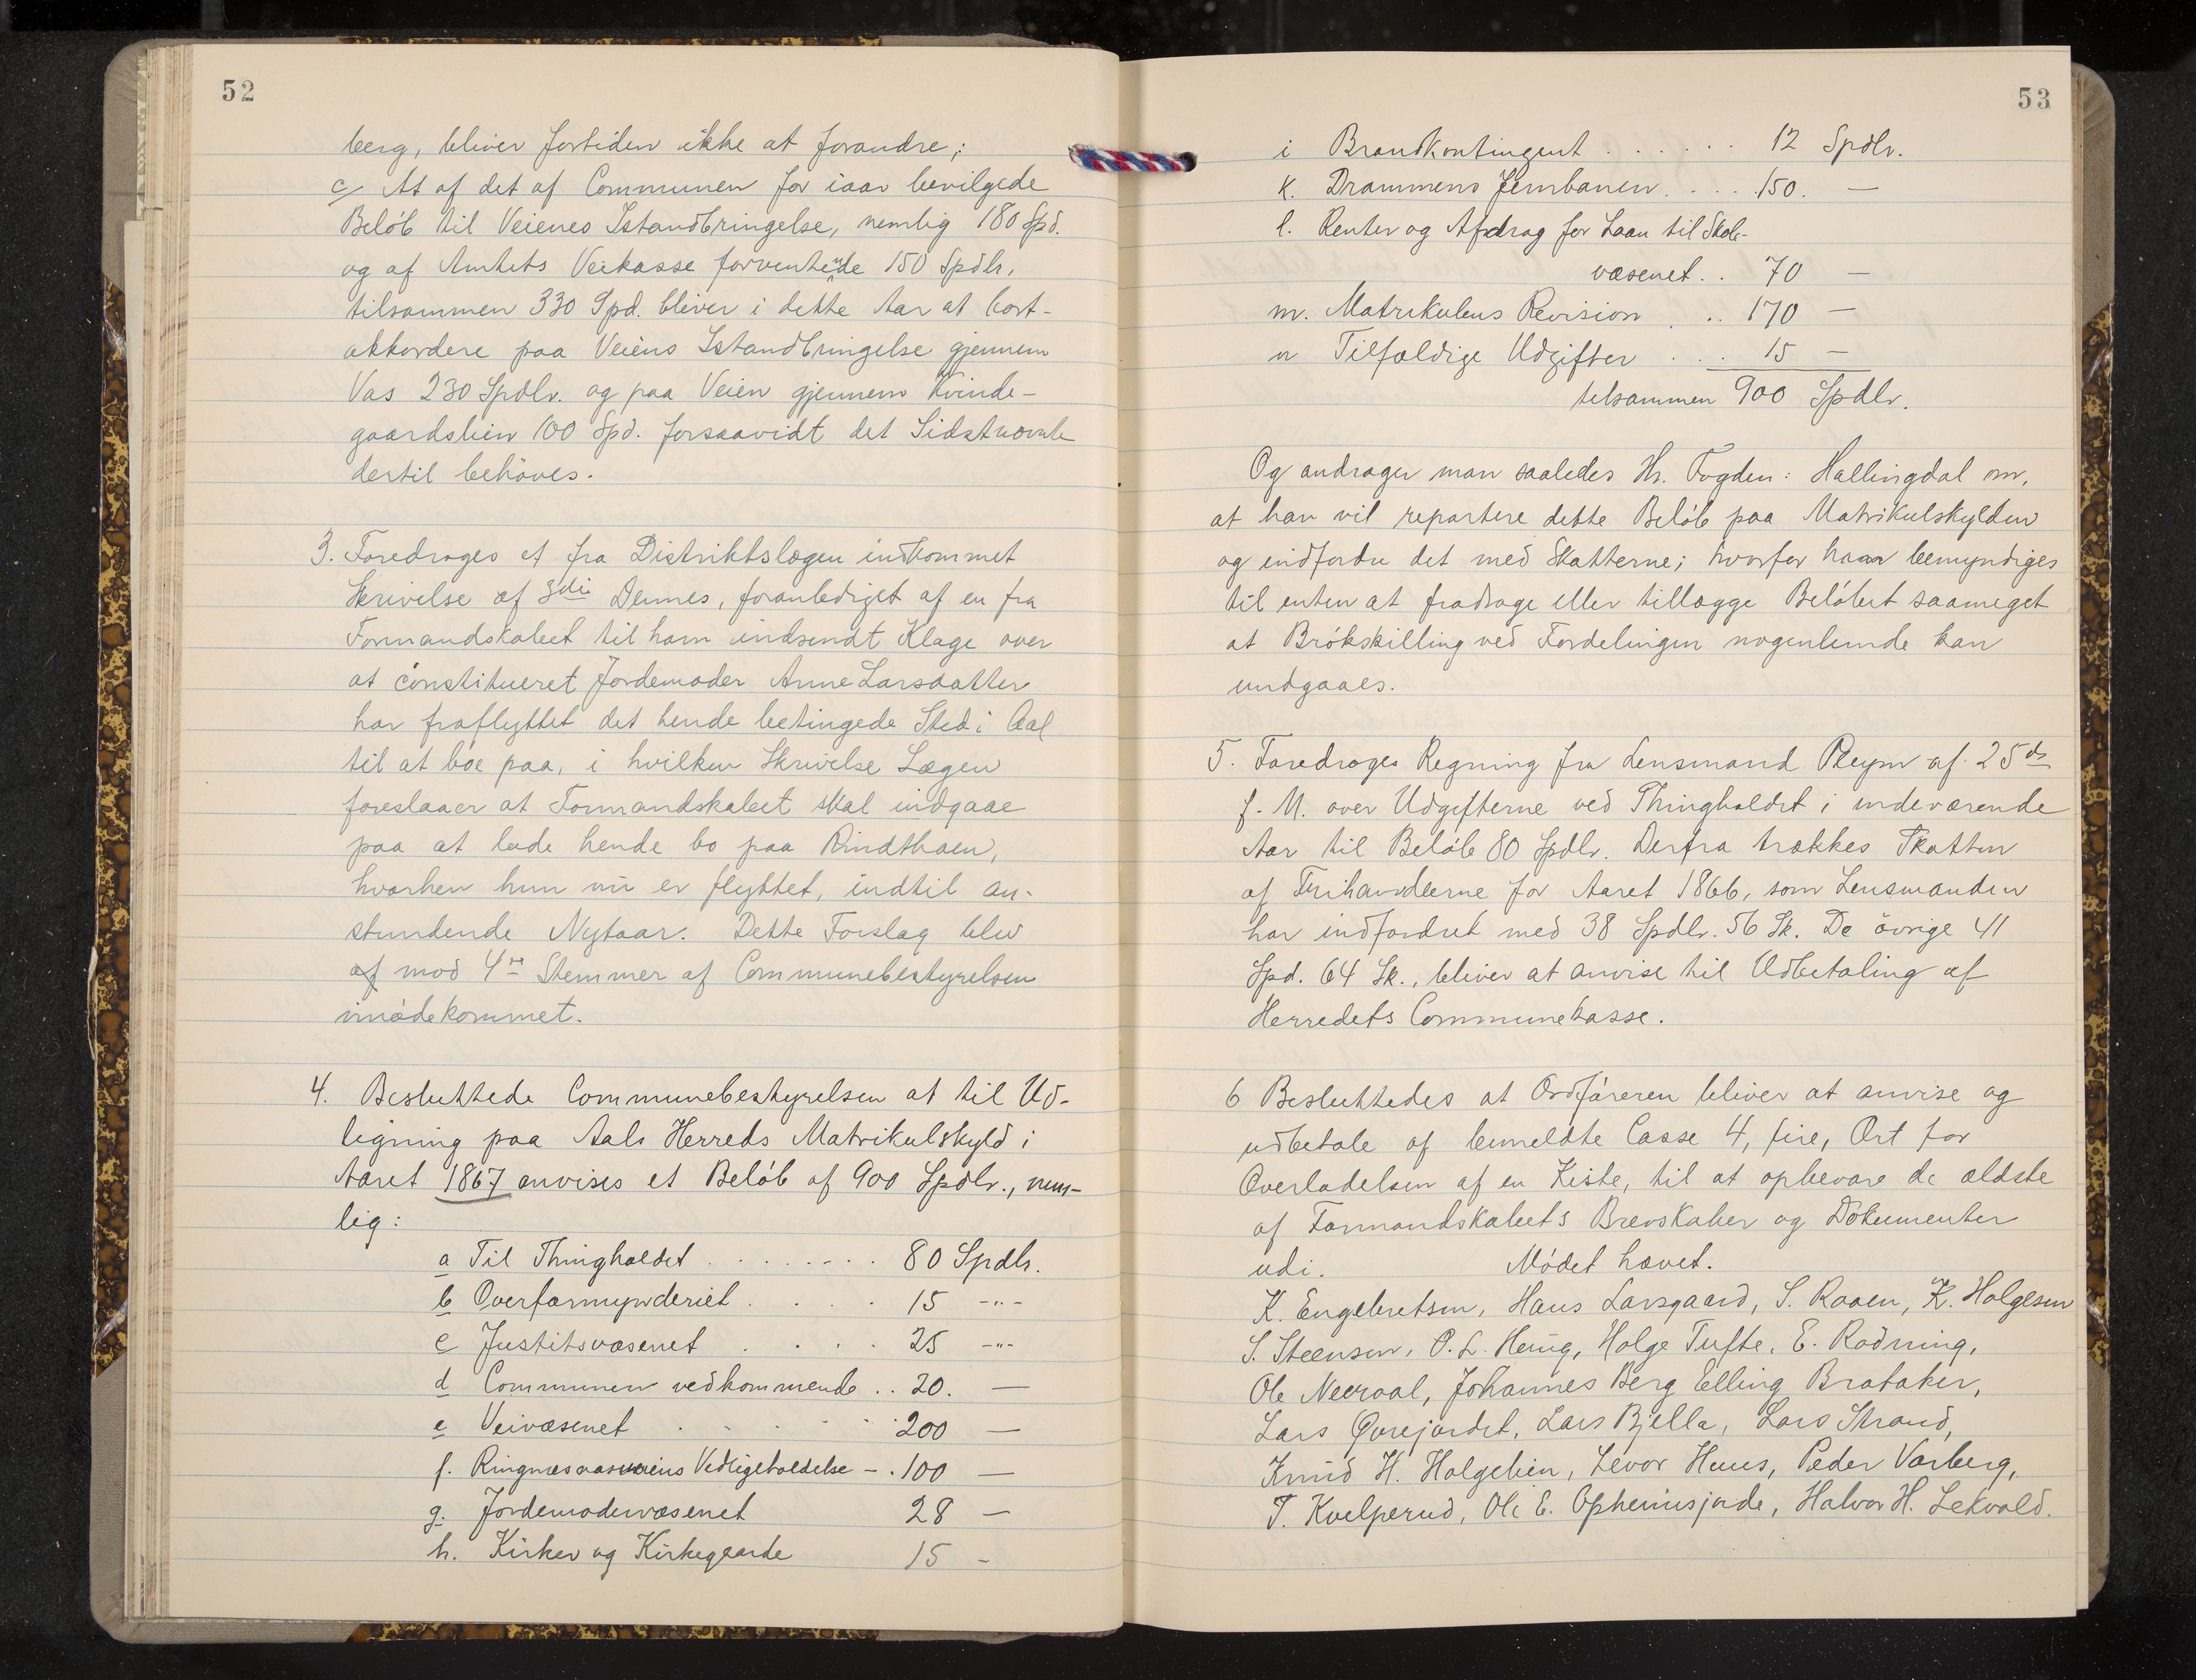 52
berg, bliver fortiden ikke at forandre;
c/ At af det af Communen for iaar bevilgede
Beløb til Veienes Istandbringelse, nemlig 180 Spd.
og af Amtets Veikasse forventende 150 Spdlr,
tilsammen 330 Spd. bliver i dette Aar at bort-
akkordere paa Veiens Istandbringelse gjennem
Vas 230 Spdlr. og paa Veien gjennem Kvinde-
gaardslien 100 Spd. forsaavidt det Sidstnævnte
dertil behöves.
3. Foredroges et fra Distriktslægen indkommet
Skrivelse af 3die Dennes, foranlediget af en fra
Formandskabet til ham indsendt Klage over
at constitueret Jordemoder Anne Larsdatter
har fraflyttet det hende betingede Sted i Aal
til at boe paa, i hvilken Skrivelse Lægen
foreslaaer at Formandskabet skal indgaae
paa at lade hende bo paa Rindthaen,
hvorhen hun nu er flyttet, indtil an-
stundende Nytaar. Dette Forslag blev
af mod 4re Stemmer af Communebestyrelsen
imødekommet.
4. Besluttede Communebestyrelsen at til Ud-
ligning paa Aals Herreds Matrikulskyld i
Aaret 1867 anvises et Beløb af 900 Spdlr., nem-
lig:
a Til Thingholdet ........ 80 Spdlr.
b Overformynderiet .... 15 -"-
c Justitsvæsenet .... 25 -"-
d Communen vedkommende .. 20. —
e Veivæsenet ...... 200 —
f. Vedligeholdelse - . 100 —
g. Jordemodervæsenet 28 —
h. Kirker og Kirkegaarde 15 -
53
i Brandkontingent ...... 12 Spdlr.
k. Drammens Jernbanen .... 150. —
l. Renter og Afdrag for Laan til Skole-
væsenet .. 70 —
m. Matrikulens Revision . .. 170 —
n Tilfældige Udgifter ... 15 —
tilsammen 900 Spdlr.
Og andrager man saaledes Hr. Fogden i Hallingdal om,
at han vil repartere dette Beløb paa Matrikulskylden
og indfordre det med Skatterne; hvorfor han bemyndiges
til enten at fradrage eller tillægge Beløbet saameget
at Brökskilling ved Fordelingen nogenlunde kan
undgaaes.
5. Foredroges Regning fra Lensmand Pleym af 25de
f. M. over Udgifterne ved Thingholdet i indeværende
Aar til Beløb 80 Spdlr. Derfra trækkes Skatten
af Frihandlerne for Aaret 1866, som Lensmanden
har indfordret med 38 Spdlr. 56 Sk. De övrige 41
Spd. 64 Sk., bliver at anvise til Udbetaling af
Herredets Communekasse.
6 Besluttedes at Ordføreren bliver at anvise og
udbetale af bemeldte Casse 4, fire, Ort for
Overladelsen af en Kiste, til at opbevare de ældste
af Formandskabets Brevskaber og Dokumenter
udi. Mödet hævet.
K. Engebretsen, Hans Larsgaard, S. Raaen, K. Holgesen
S. Steensen, O. L. Haug, Holge Tufte, E. Rødning,
Ole Neeraal, Johannes Berg Elling Brataker,
Lars Qvrejordet, Lars Bjella, Lars Strand,
Knud H. Holgelien, Levor Huus, Peder Varberg,
T. Kvelprud, Ole E. Opheimsjorde, Halvor H. Lekvold.